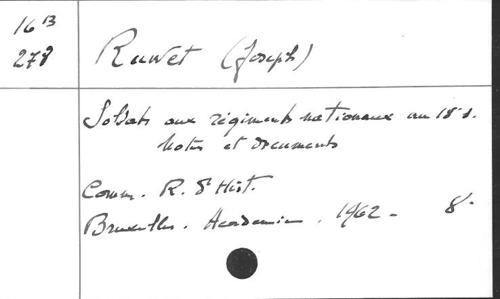 16 B
278
Ruwet (Joseph)
Soldats aux régiments nationaux au 18e s.
Notes et documents
Comm. R. d'Hist.
Bruxelles. Academie. 1962 - 8°